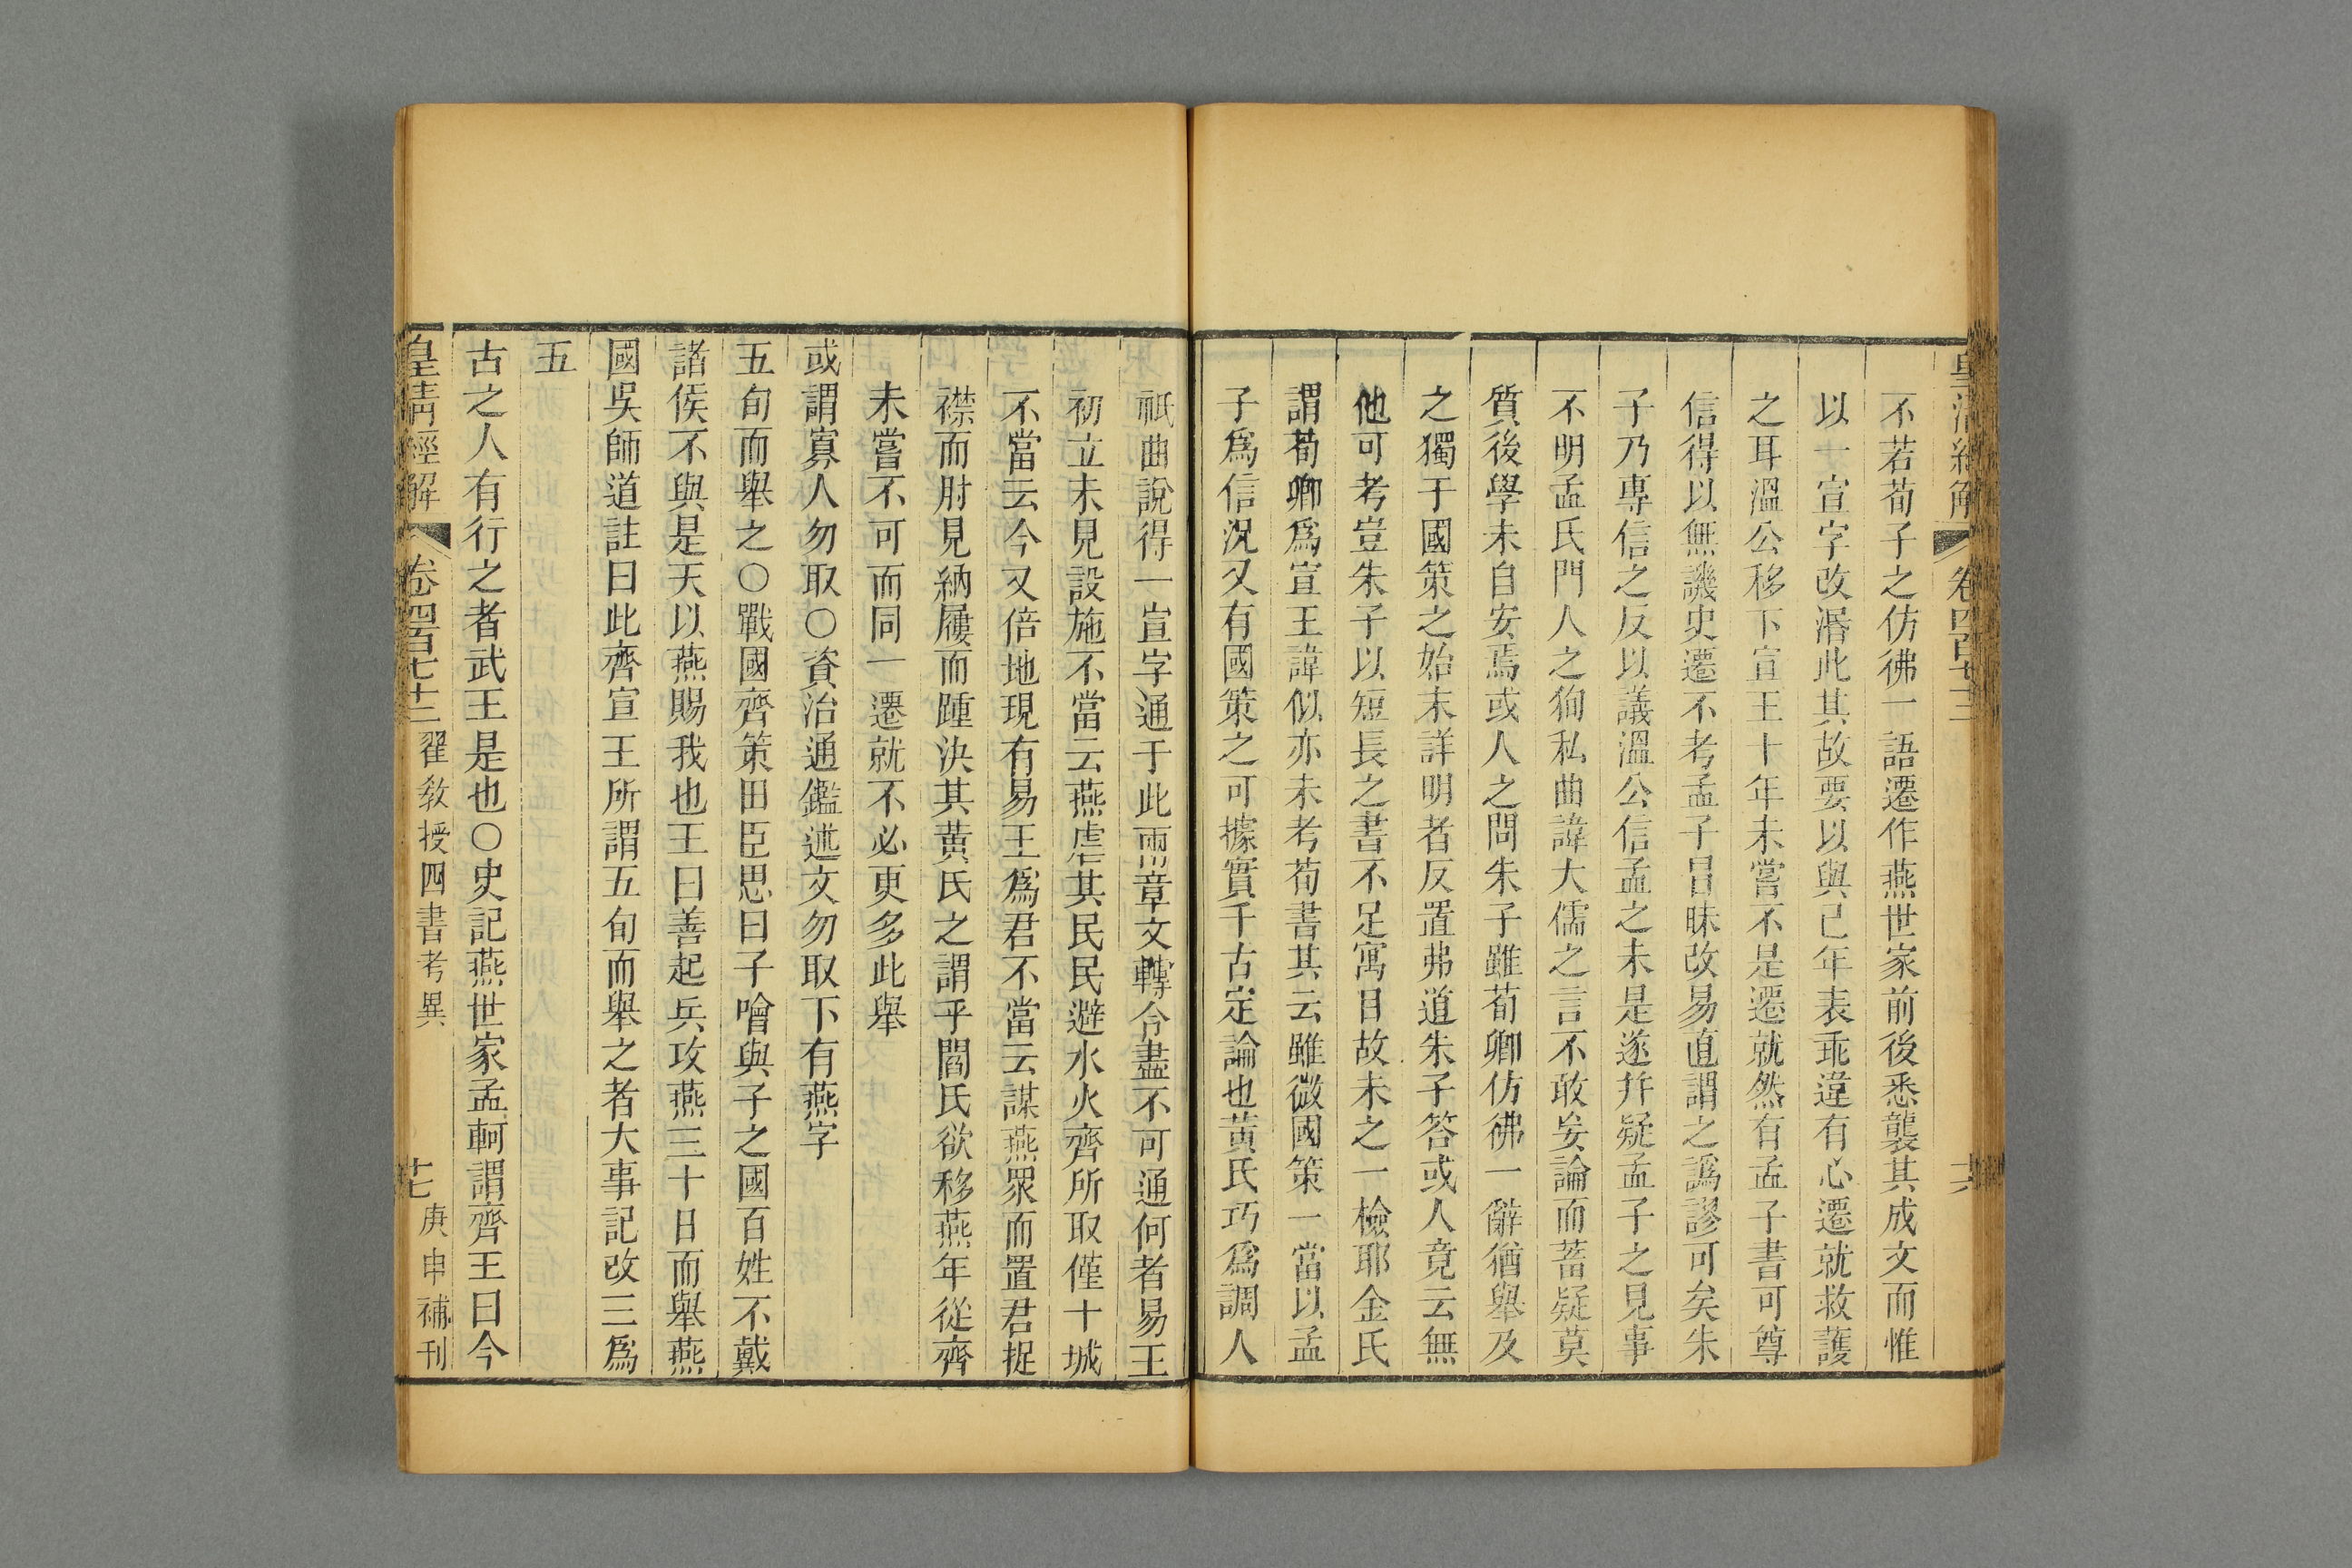 皇清經解 卷四百七十三 十六
不若荀子之仿彿一語遷作燕世家前後悉襲其成文而惟
以一宣字改湣此其故要以與己年表乖違有心遷就救護
之耳溫公移下宣王十年未嘗不是遷就然有孟子書可尊
信得以無譏史遷不考孟子冒昧改易直謂之譌謬可矣朱
子乃專信之反以議溫公信孟之未是遂幷疑孟子之見事
不明孟氏門人之狥私曲諱大儒之言不敢妄論而蓄疑莫
質後學未自安焉或人之問朱子雖荀卿仿彿一辭猶舉及
之獨于國策之始末詳明者反置弗道朱子答或人竟云無
他可考豈朱子以短長之書不足寓目故未之一檢耶金氏
謂荀卿爲宣王諱似亦未考荀書其云雖微國策一當以孟
子爲信況又有國策之可據實千古定論也黃氏巧爲調人
祇曲說得一宣字通于此兩章文轉令盡不可通何者易王
初立未見設施不當云燕虐其民民避水火齊所取僅十城
不當云今又倍地現有易王爲君不當云謀燕眾而置君捉
襟而肘見納屨而踵決其黃氏之謂乎閻氏欲移燕年從齊
未嘗不可而同一遷就不必更多此舉
或謂寡人勿取○資治通鑑述文勿取下有燕字
五旬而舉之○戰國齊策田臣思曰子噲與子之國百姓不戴
諸侯不與是天以燕賜我也王曰善起兵攻燕三十日而舉燕
國吳師道註曰此齊宣王所謂五旬而舉之者大事記改三爲
五
古之人有行之者武王是也○史記燕世家孟軻謂齊王曰今
皇清經解 卷四百七十三 翟教授四書考異 十七 庚申補刊